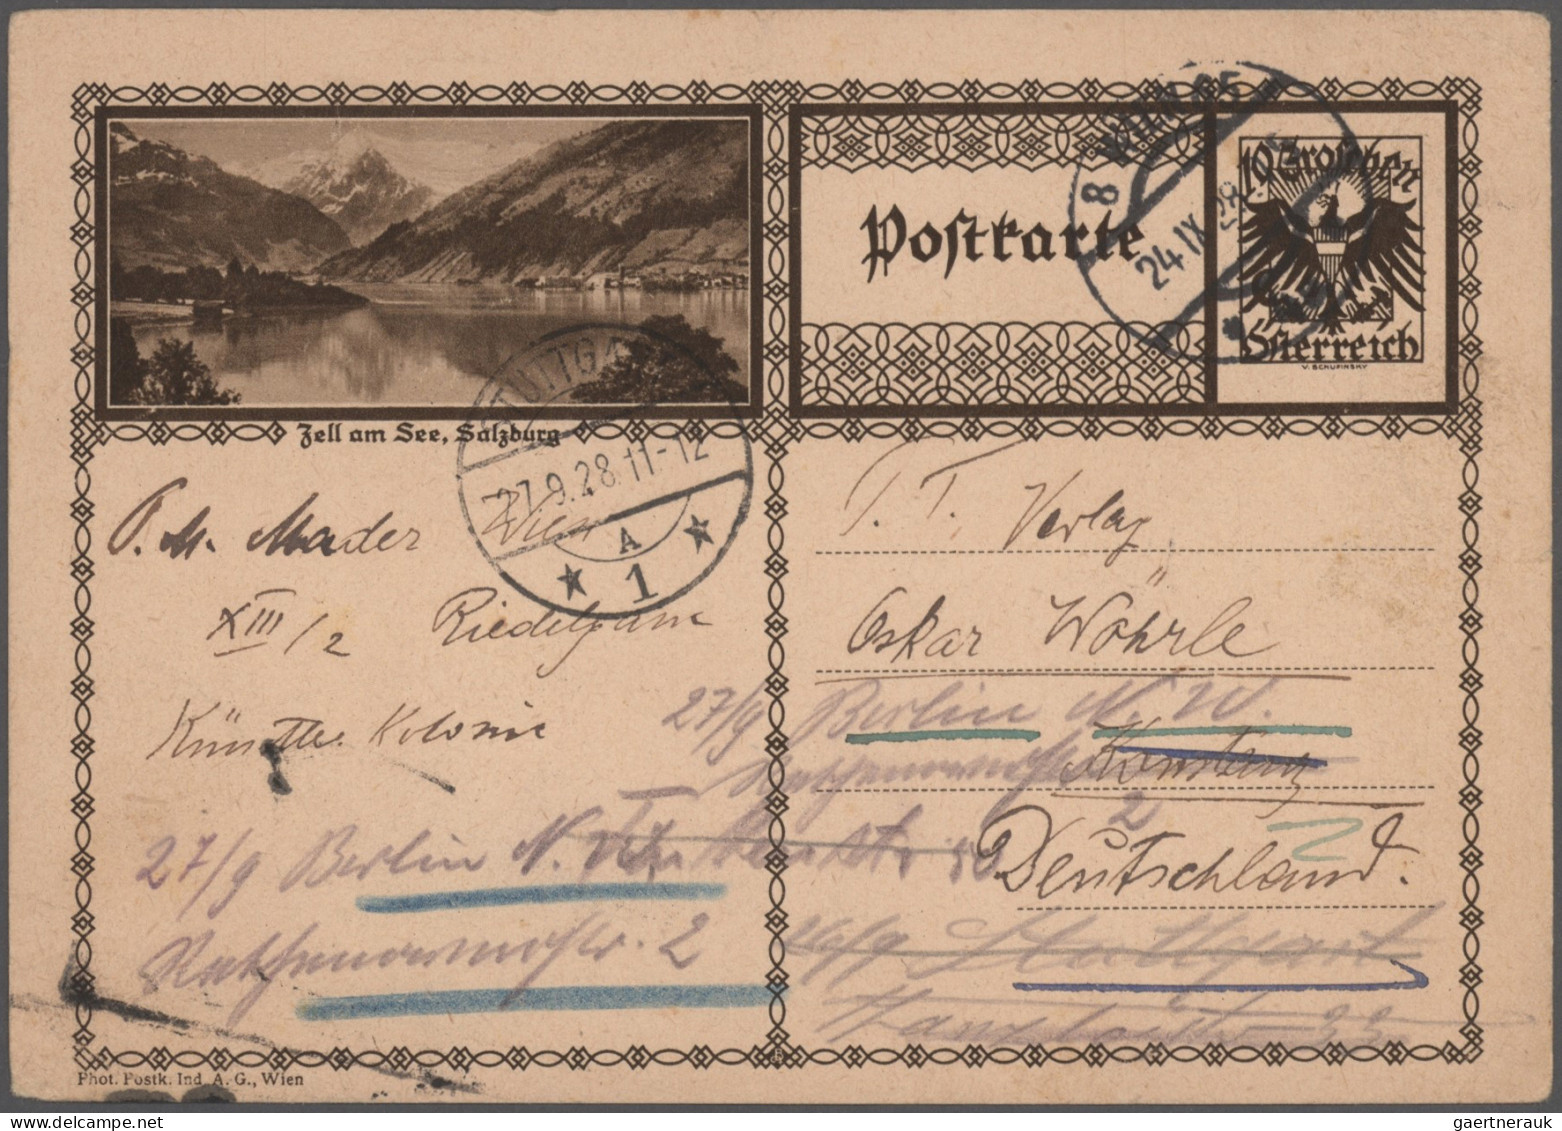 Postkarte
10 Groschen
Österreich
V. SCHUFINSKY
8 WIEN
24 IX 28
Zell am See, Salzburg
STUTTGART
27.9.28.11-12
A
★ 1 ★
P. M. Mader Wien
XIII/2 Riedelgasse
Künstler Kolonie
T. T. Verlag
Oskar Wöhrle
27/9 Berlin N.W.
Konstanz
2
Deutschland.
27/9 Berlin N.W.
Rathenowerstr. 2
26/9 Stuttgart
33
Phot. Postk. Ind. A. G., Wien
gaertnerauk